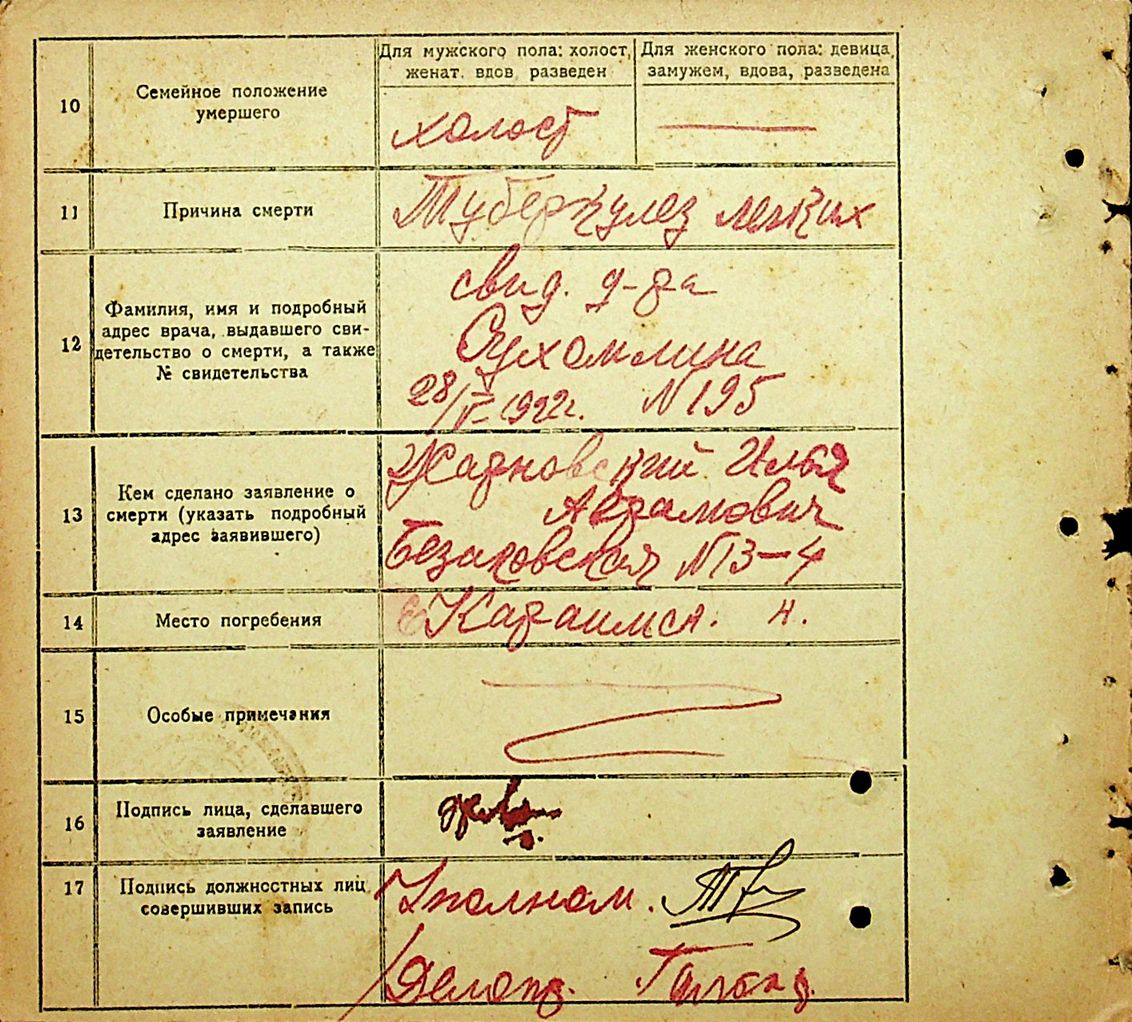 10
Семейное положение
умершего
Для мужского пола: холост,
женат. вдов, разведен
Для женского пола: девица,
замужем, вдова, разведена
холост
11
Причина смерти
Туберкулез легких
12
Фамилия, имя и подробный
адрес врача, выдавшего сви-
детельство о смерти, а также
№ свидетельства
свид. д-ра
Сухомлина
28/IV-1922г. N 195
13
Кем сделано заявление о
смерти (указать подробный
адрес заявившего)
Жарновский Илья
Абрамович
Безаковская N 13-4
14
Место погребения
Караимск. к.
15
Особые примечания
16
Подпись лица, сделавшего
заявление
17
Подпись должностных лиц,
совершивших запись
Уполном.
Делопр.